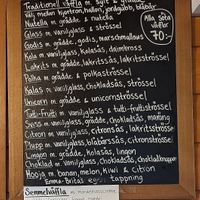 Traditionell våffla m. sylt & grädde
val mellan hjortron, hallon, jordgubb, blåbär
Nutella m. grädde & nutella
Glass m. vaniljglass & strössel
Godis m. grädde, godis, marshmallows
Kola m. vaniljglass, Kolasås, daimkross
Lakrits m. grädde, lakritssås, lakritsströssel
Polka m. grädde & polkaströssel
Kalas m. vaniljglass, chokladsås, strössel
Unicorn m. grädde & unicornströssel
Tutti-frutti m. vaniljglass & tutti-fruttiströssel
Swiss m. vaniljglass, grädde, chokladsås, maräng
Citron m. vaniljglass, citronsås, lakritsströssel
Plupp m. vaniljglass, blåbärssås, citronströssel
Lingon m. grädde, kolasås, lingon
Choklad m. vaniljglass, chokladsås, Chokladknappar
Kooja m. banan, melon, Kiwi & citron
topping
Semmelvåffla m.
Alla söta
våfflor
70:-